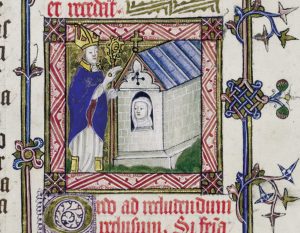 et recedat.
Ordo ad recludendum
reclusum. Si